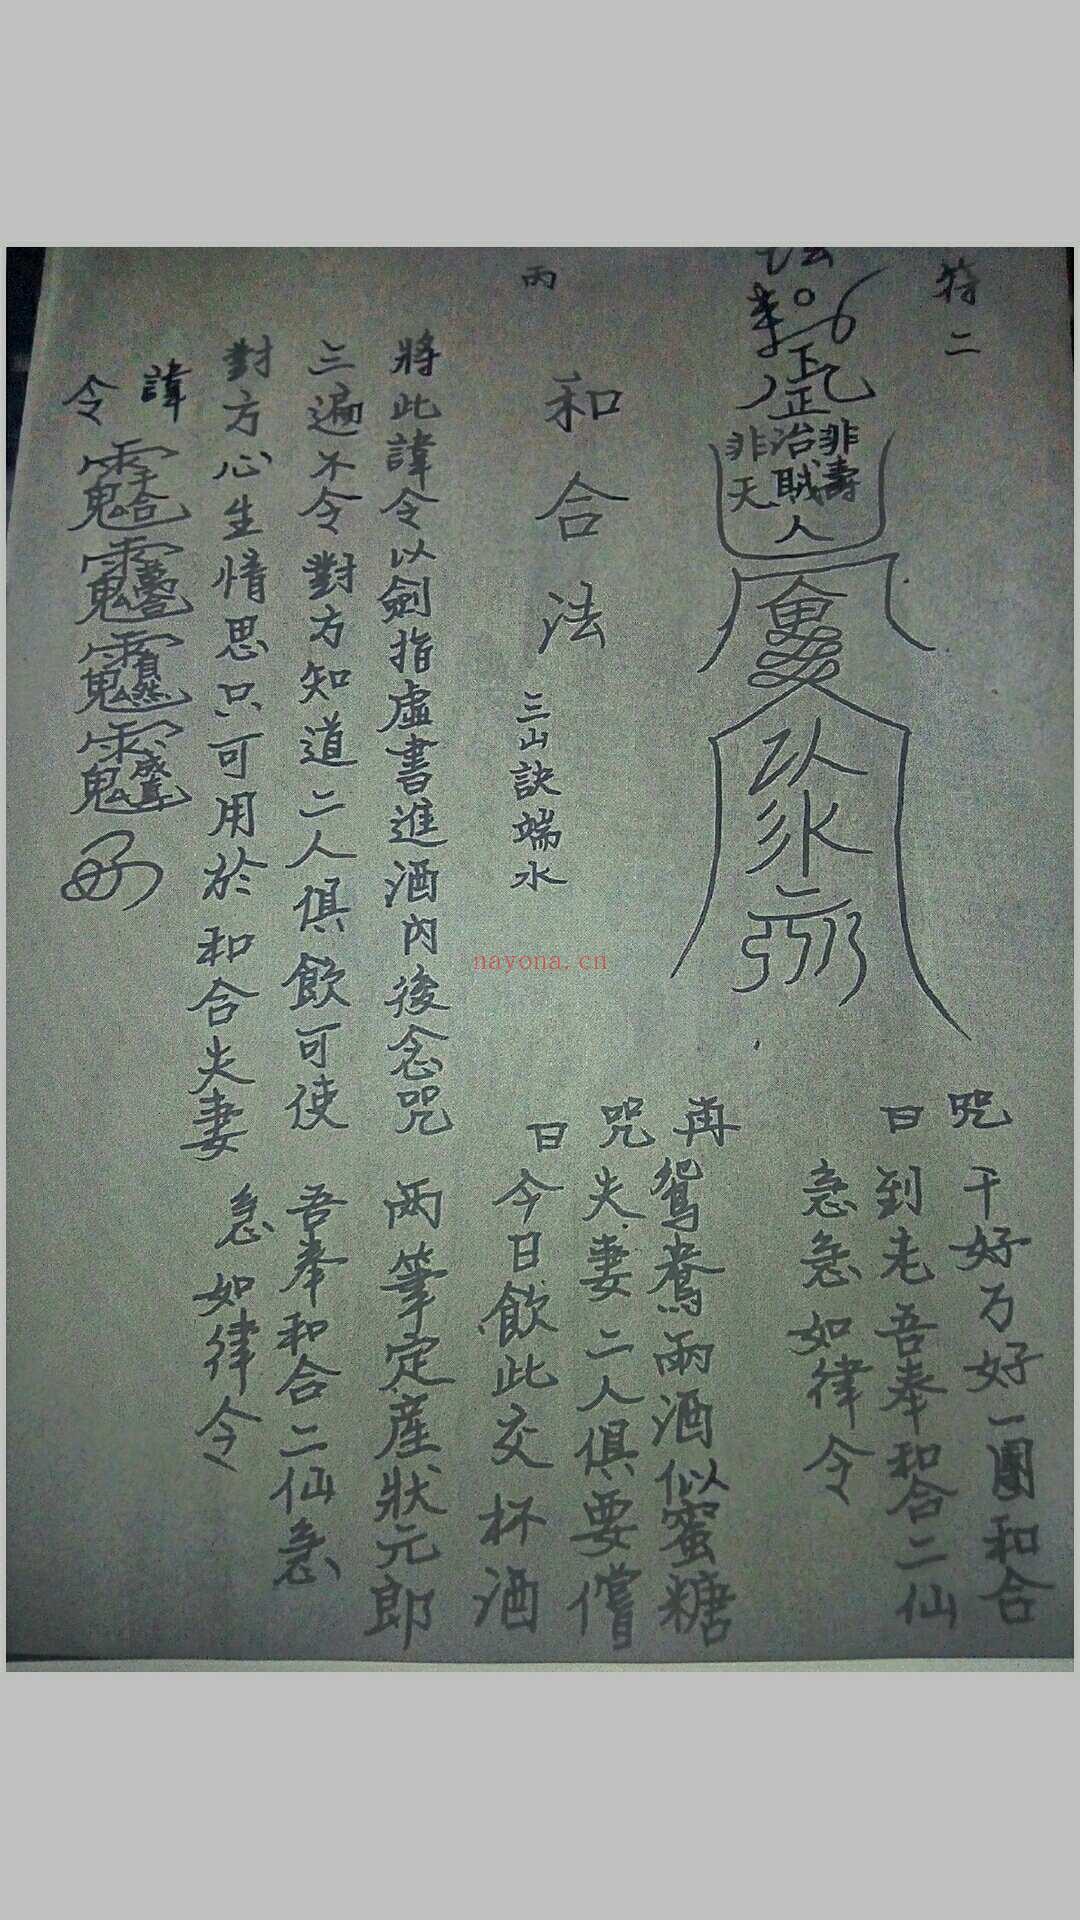 符二
非治非
天賊壽
人
咒曰
千好万好一團和合
到老吾奉和合二仙
急急如律令
丙
和合法
三山訣端水
再咒曰
鴛鴦兩酒似蜜糖
夫妻二人俱要嘗
今日飲此交杯酒
將此諱令以劍指虛書進酒內後念咒
两筆定産狀元郎
三遍不令對方知道二人俱飲可使
吾奉和合二仙急
對方心生情思只可用於和合夫妻
急如律令
諱令
nayona.cn